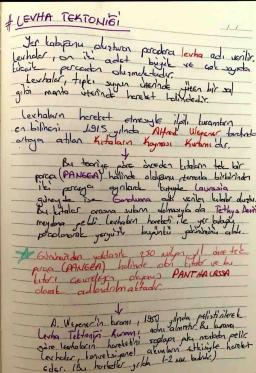 # LEVHA TEKTONİĞİ
Yer kabuğunu oluşturan parçalara levha adı verilir.
Levhalar, on iki adet büyük ve çok sayıda
küçük parçadan oluşmaktadır.
Levhalar, tıpkı suyun üzerinde yüzen bir sal
gibi manto üzerinde hareket halindedir.
Levhaların hareket etmesiyle ilgili kuramların
en bilineni 1915 yılında Alfred Wegener tarafından
ortaya atılan Kıtaların Kayması Kuramı'dır.
Bu teoriye göre önceden kıtaların tek bir
parça (PANGEA) halinde olduğunu zamanla birbirinden
iki parçaya ayrılarak kuzeyde Laurasia
güneyde ise Gondwana adı verilen kıtalar oluştu.
Bu kıtalar arasına suların dolmasıyla da Tethys Denizi
meydana geldi. Levhaların hareketi ile yer kabuğu
parçalanarak yeryüzü bugünkü
Günümüzden yaklaşık 250 milyon yıl önce tek
parça (PANGEA) halinde olan kıtalar ve bu
kıtayı çevreleyen okyanus PANTHALASSA
olarak adlandırılmaktadır.
A. Wegener'in kuramı, 1950 yılında geliştirilerek
Levha Tektoniği Kuramı adını almıştır. Bu kurama
göre levhaların hareketini sağlayan güç nedenin
Levhalar, konveksiyonel akımların etkisiyle hareket
eder. (Bu hareketler yılda